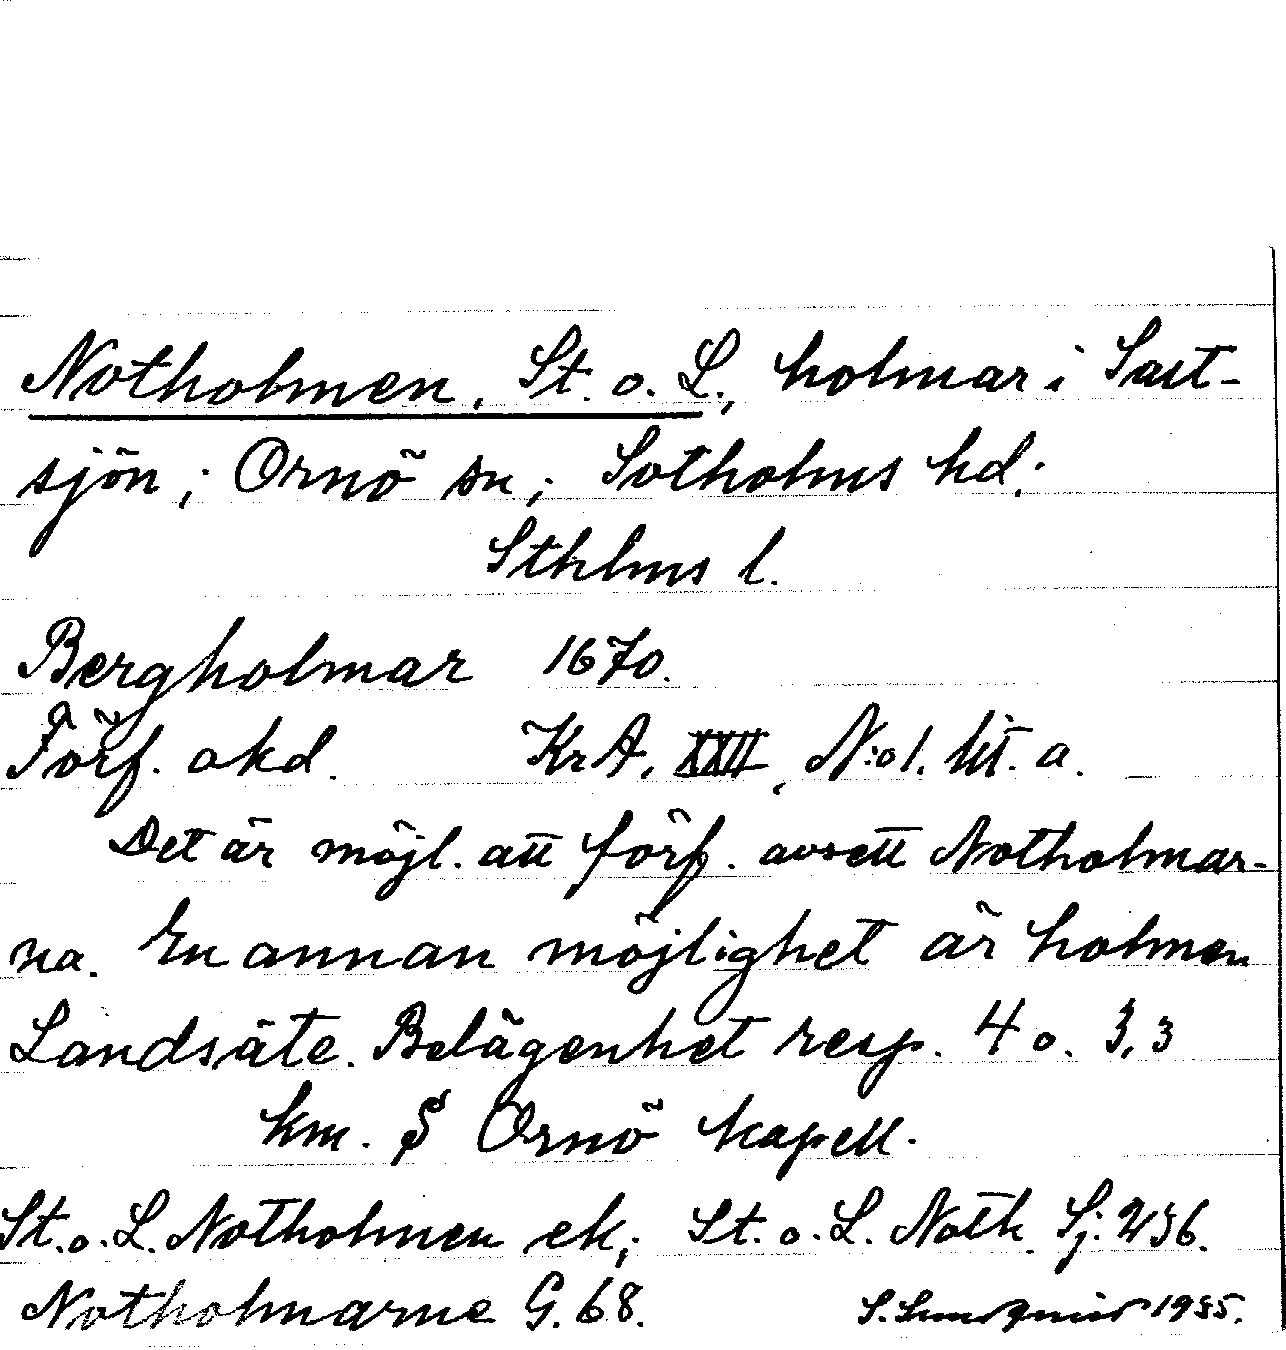 Notholmen, St. o. L., holmar i Salt-
sjön; Ornö sn; Sotholms hd;
Sthlms l.
Bergholmar 1670.
Förf. okd. KrA, XXII, N:o 1. litt. a.
Det är möjl. att förf. avsett Notholmar-
na. En annan möjlighet är holmen
Landsäte. Belägenhet resp. 4 o. 3,3
km. S Ornö kapell.
St. o. L. Notholmen ek; St. o. L. Noth. Sj. 236.
Notholmarne G. 68. S. Lundqvist 1935.